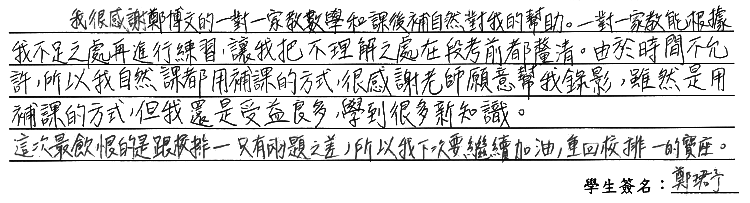 我很感謝鄭博文的一對一家教數學和課後補自然對我的幫助。一對一家教能根據
我不足之處再進行練習,讓我把不理解之處在段考前都釐清。由於時間不允
許,所以我自然課都用補課的方式,很感謝老師願意幫我錄影,雖然是用
補課的方式,但我還是受益良多,學到很多新知識。
這次最飲恨的是跟校排一只有兩題之差,所以我下次要繼續加油,重回校排一的寶座。
學生簽名:鄭珺予